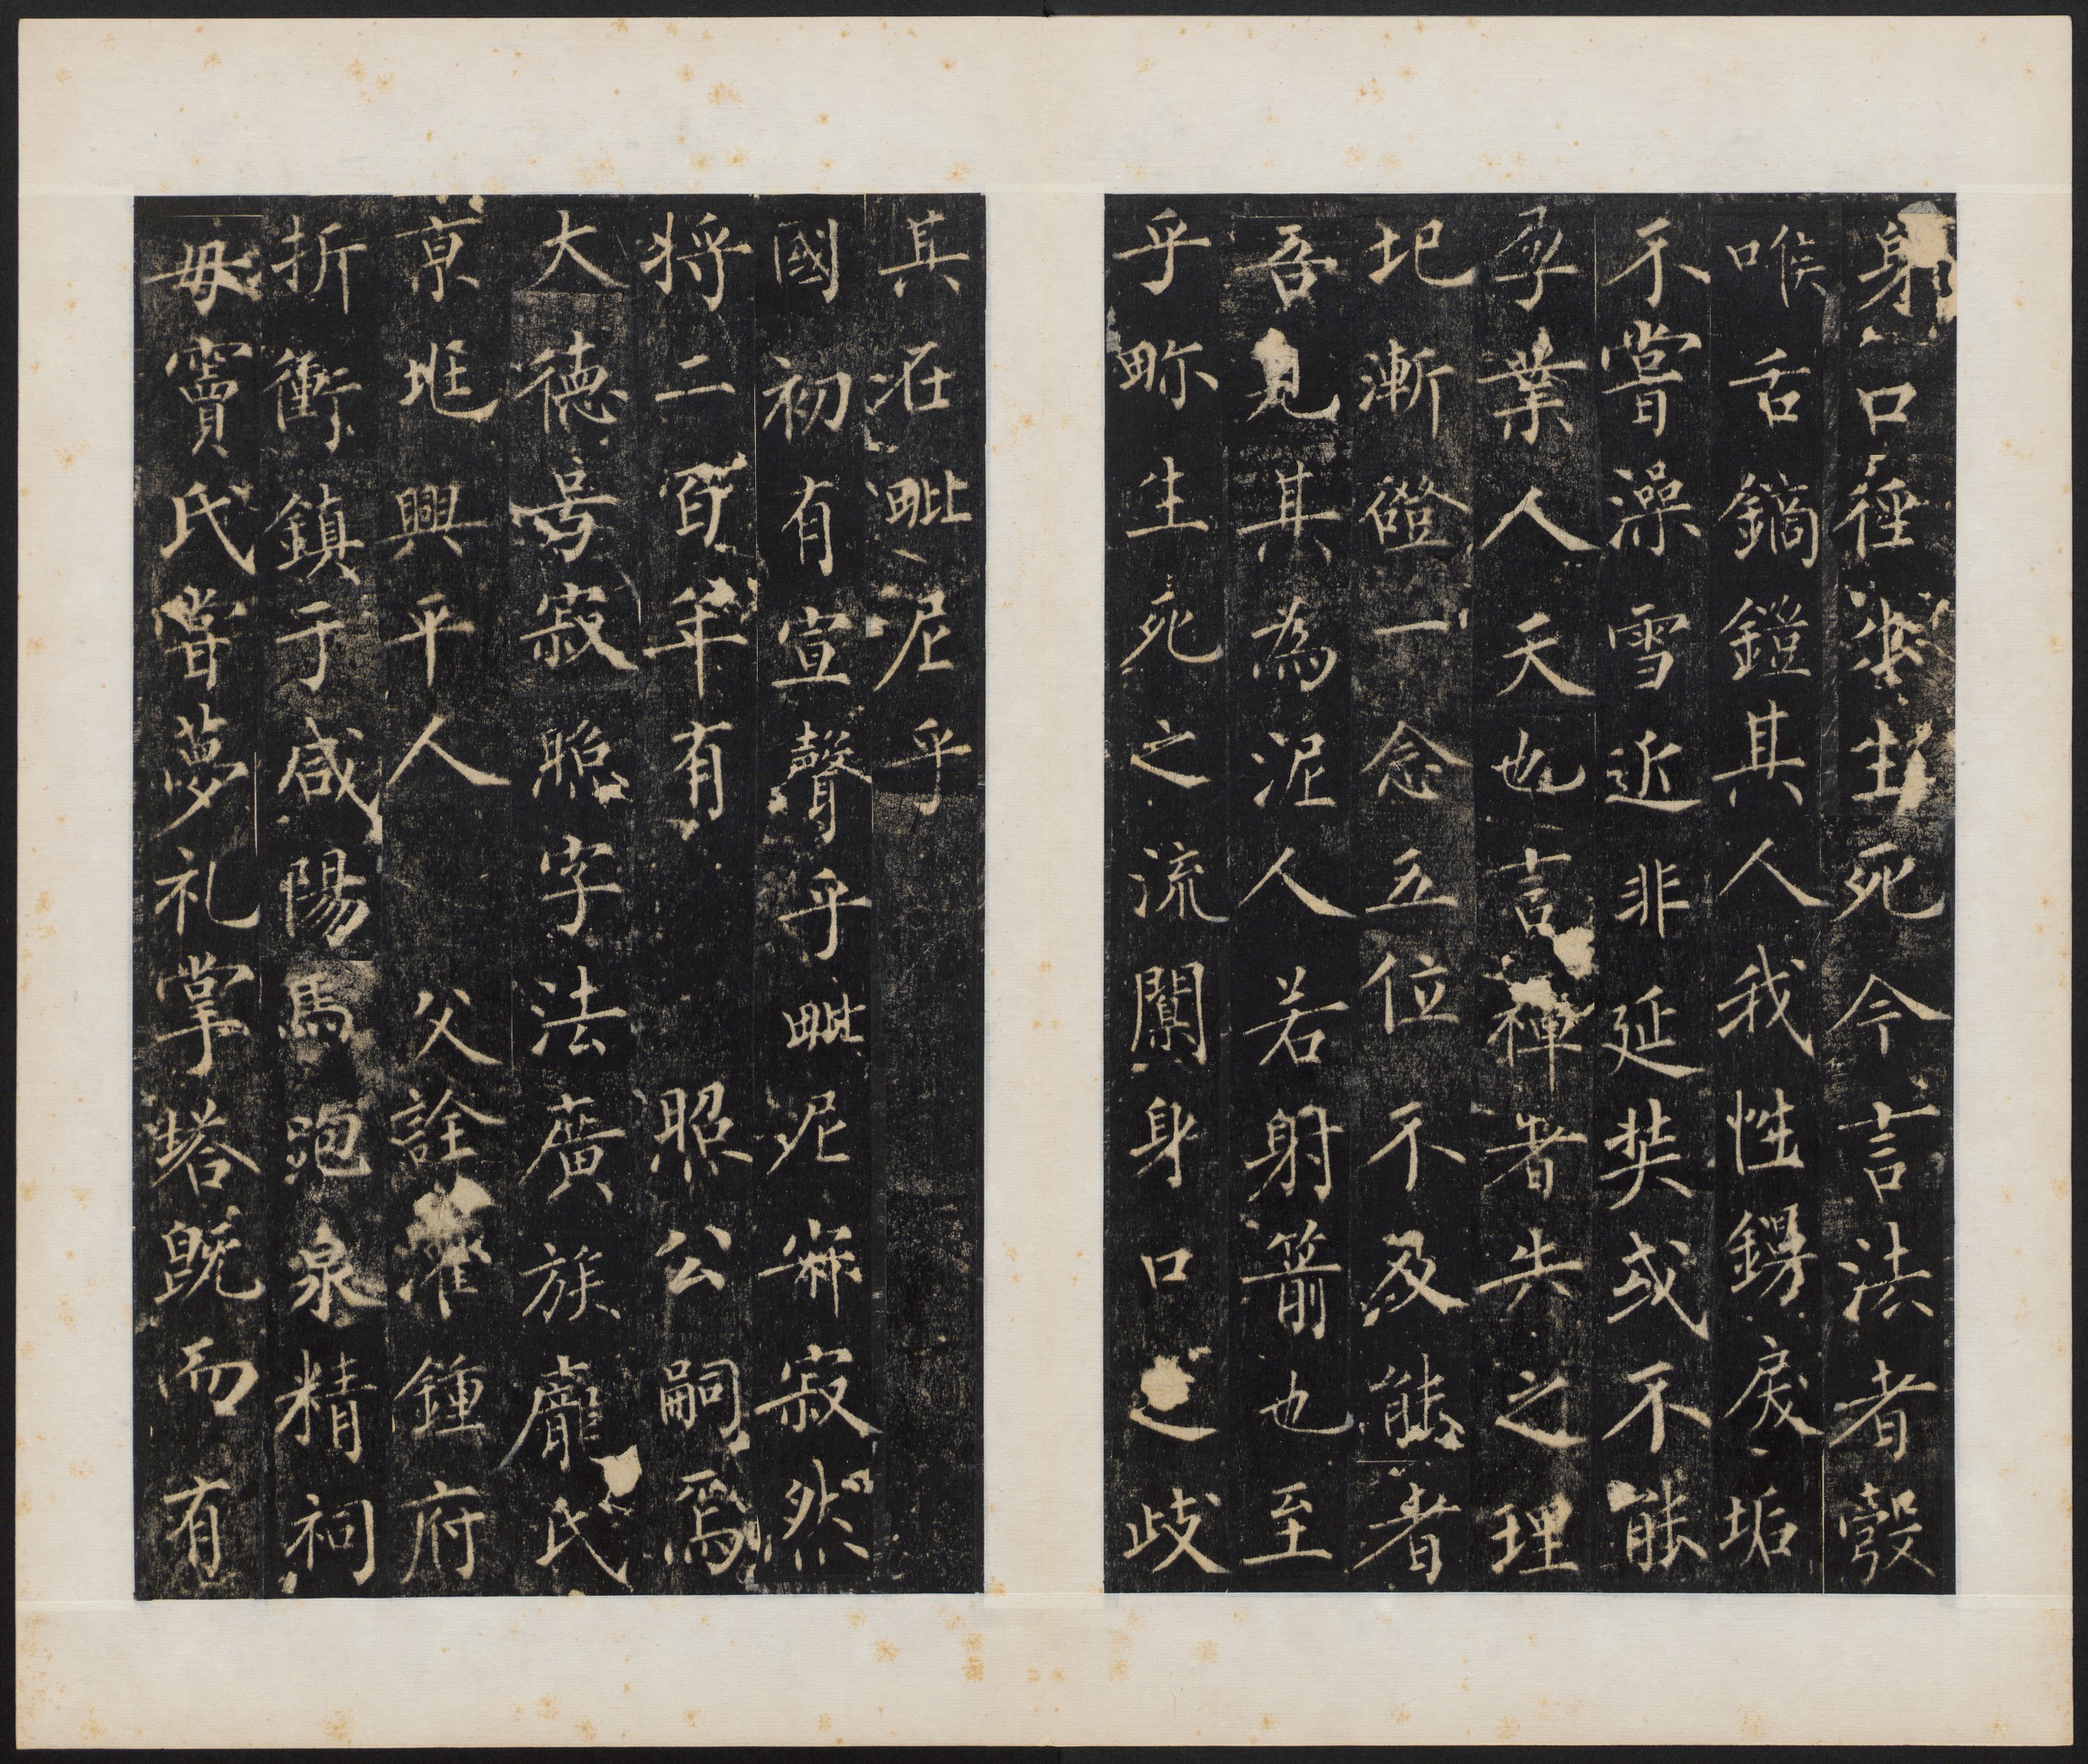 身口徑生死今言法者彀
喉舌鏑鎧其人我性鎊戾垢
不嘗澡雪近非延奘或不能
孕業人天也言禪者失之理
圯漸磴一念立位不及能者
吾見其為泥人若射箭也至
乎眎生死之流闠身口之歧
其在毗尼乎
國初有宣聲乎毗尼寂然
将二百年有照公嗣焉
大德号寂照字法廣族龐氏
京垗興平人父詮灌鍾府
折衝鎮于咸陽馬泡泉精祠
母竇氏嘗夢礼掌塔既而有